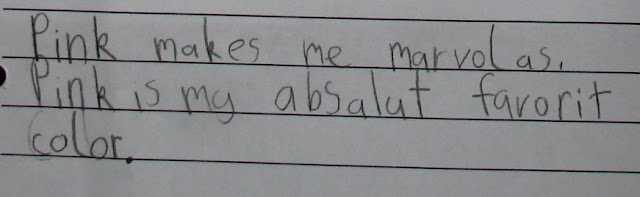 Pink makes me marvolas.
Pink is my absalut favorit
color.